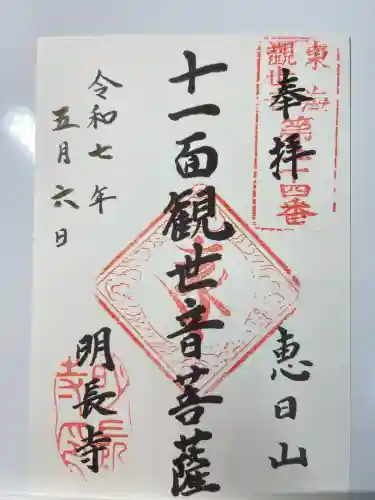 奉拝
恵日山
十一面観世音菩薩
令和七年
五月六日
明長寺
東海
観世
四番